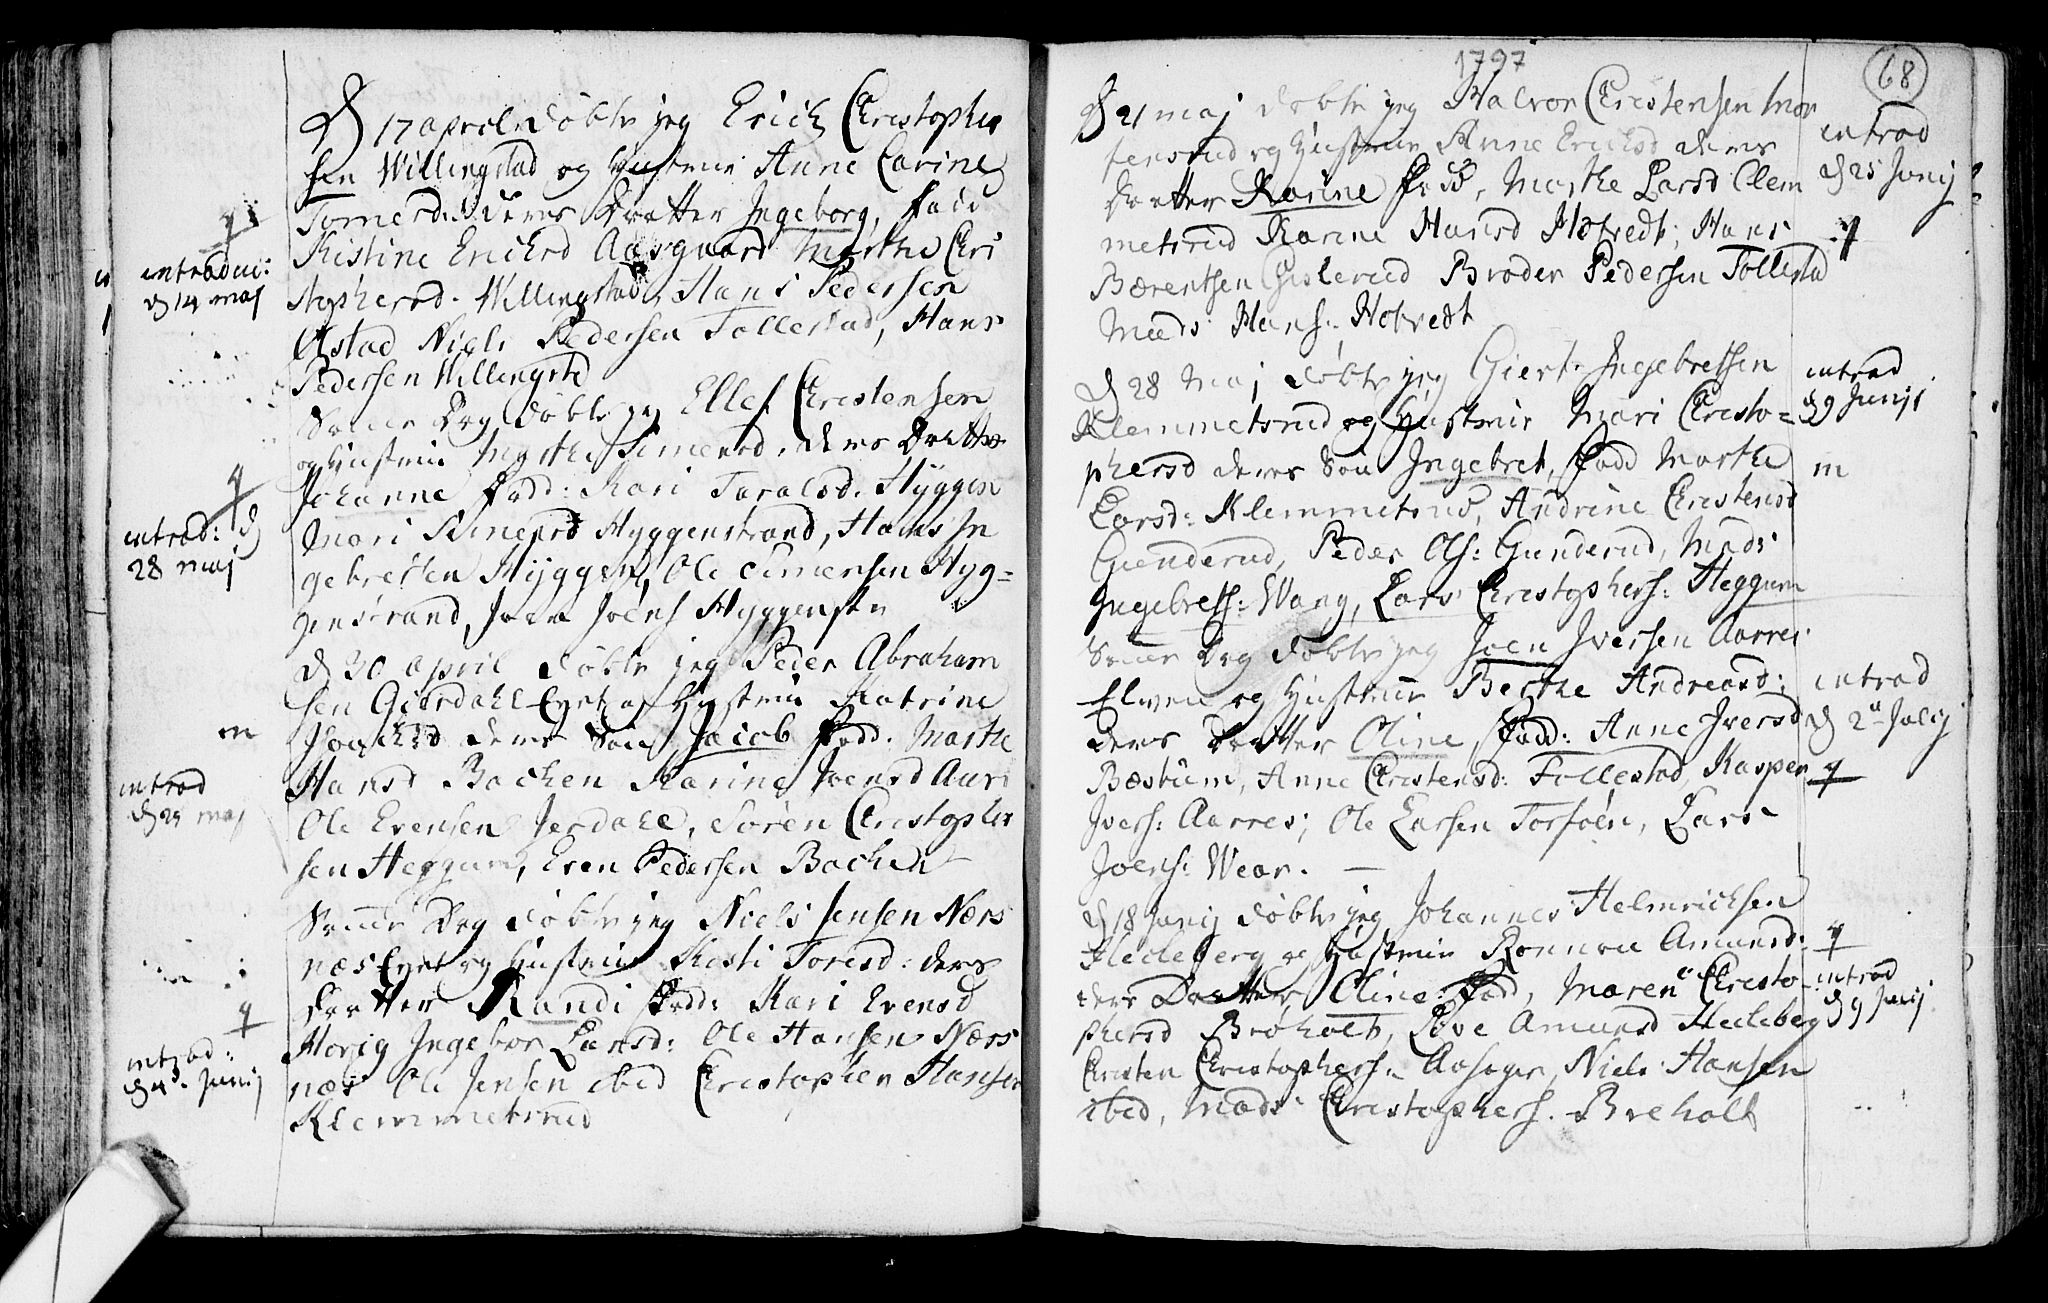 D 17 april døbte jeg Erich Christopher
sen Willingstad og Hustrue Anne Carine
Tomesd. deres Daatter Ingeborg, Fadd
Kistine Ericksd Aasgaard Marthe Chri
stophersd. Willingstad, Hans Pedersen
Østad Niels Pedersen Follestad, Hans
Pedersen Willingstd
q
introduc:
d 14 maj
Samme Dag døbte jeg Ellef Christensen
og Hustrue Marthe Simensd, deres Daatter
Johanne Fadd: Kari Taralsd. Hyggen
Mari Hyggenstrand, Hans In
gebretsen Hyggen, Ole Simensen Hyg=
genstrand, Joens Hyggenstr
q
introd: d
28 maj
d 30 april døbte jeg Peder Abraham
sen Gierdahl Eyet og Hustrue Katrine
deres Søn Jacob Fadd: Marthe
Hansd Bachen Karine Joensd Aar
Ole Evensen Jerdahl, Søren Christopher
sen Heggum, Even Pedersen Bachen
m
introd
d 29 maj
Samme Dag døbte jeg Niels Jensen Nærs
næs Eyet og Hustrue Kisti Toresd: deres
Daatter Randi Fadd: Kari Evensd
Hørig Ingebor Larsd: Ole Hansen Nærs
næs Ole Jensen ibid Christopher Hansen
Klemmetsrud
q
introd:
d 4 Junij
1797
68
D 21 maj døbte jeg Halvor Christensen Mor
tensrud og Hustrue Anne Ericksd deres
Daatter Karine Fadd, Marthe Larsd Clem
metsrud Karine Hansd Hotvedt, Hans
Bærentsen Gislerud Broder Pedersen Follestad
Mads Hans: Hotvedt
introd
d 25 Junij
q
d 28 Maj døbte jeg Giert Ingebretsen
Klemmetsrud og Hustrue Mari Christo=
phersd deres Søn Ingebret, Fadd Marthe
Larsd: Klemmetsrud, Andrine Christensd
Gunderud, Peder Ols: Gunderud, Mads
Ingebretss: Wang, Lars Christophers: Heggum
introd
d 9 Junij
m
Samme Dag døbte jeg Joen Iversen Aarres
Elwen og Hustrue Berthe Andreasd:
deres Daatter Oline, Fadd: Anne Iversd
Bøstum, Anne Christensd: Follestad, Kasper
Ivers: Aarres; Ole Larsen Torsøen, Lars
Joens: Wear.
introd
d 2 Julij
q
d 18 Junij døbte jeg Johannes Helmichsen
Hedeberg og Hustrue Ronnou Amunsd:
deres Daatter Oline Fadd, Maren Christo-
phersd Brøholt, Live Amunsd Hedeberg
Christen Christophers: Aasager, Niels Hansen
ibid, Mads Christophers. Breholt
q
introd
d 9 Julij